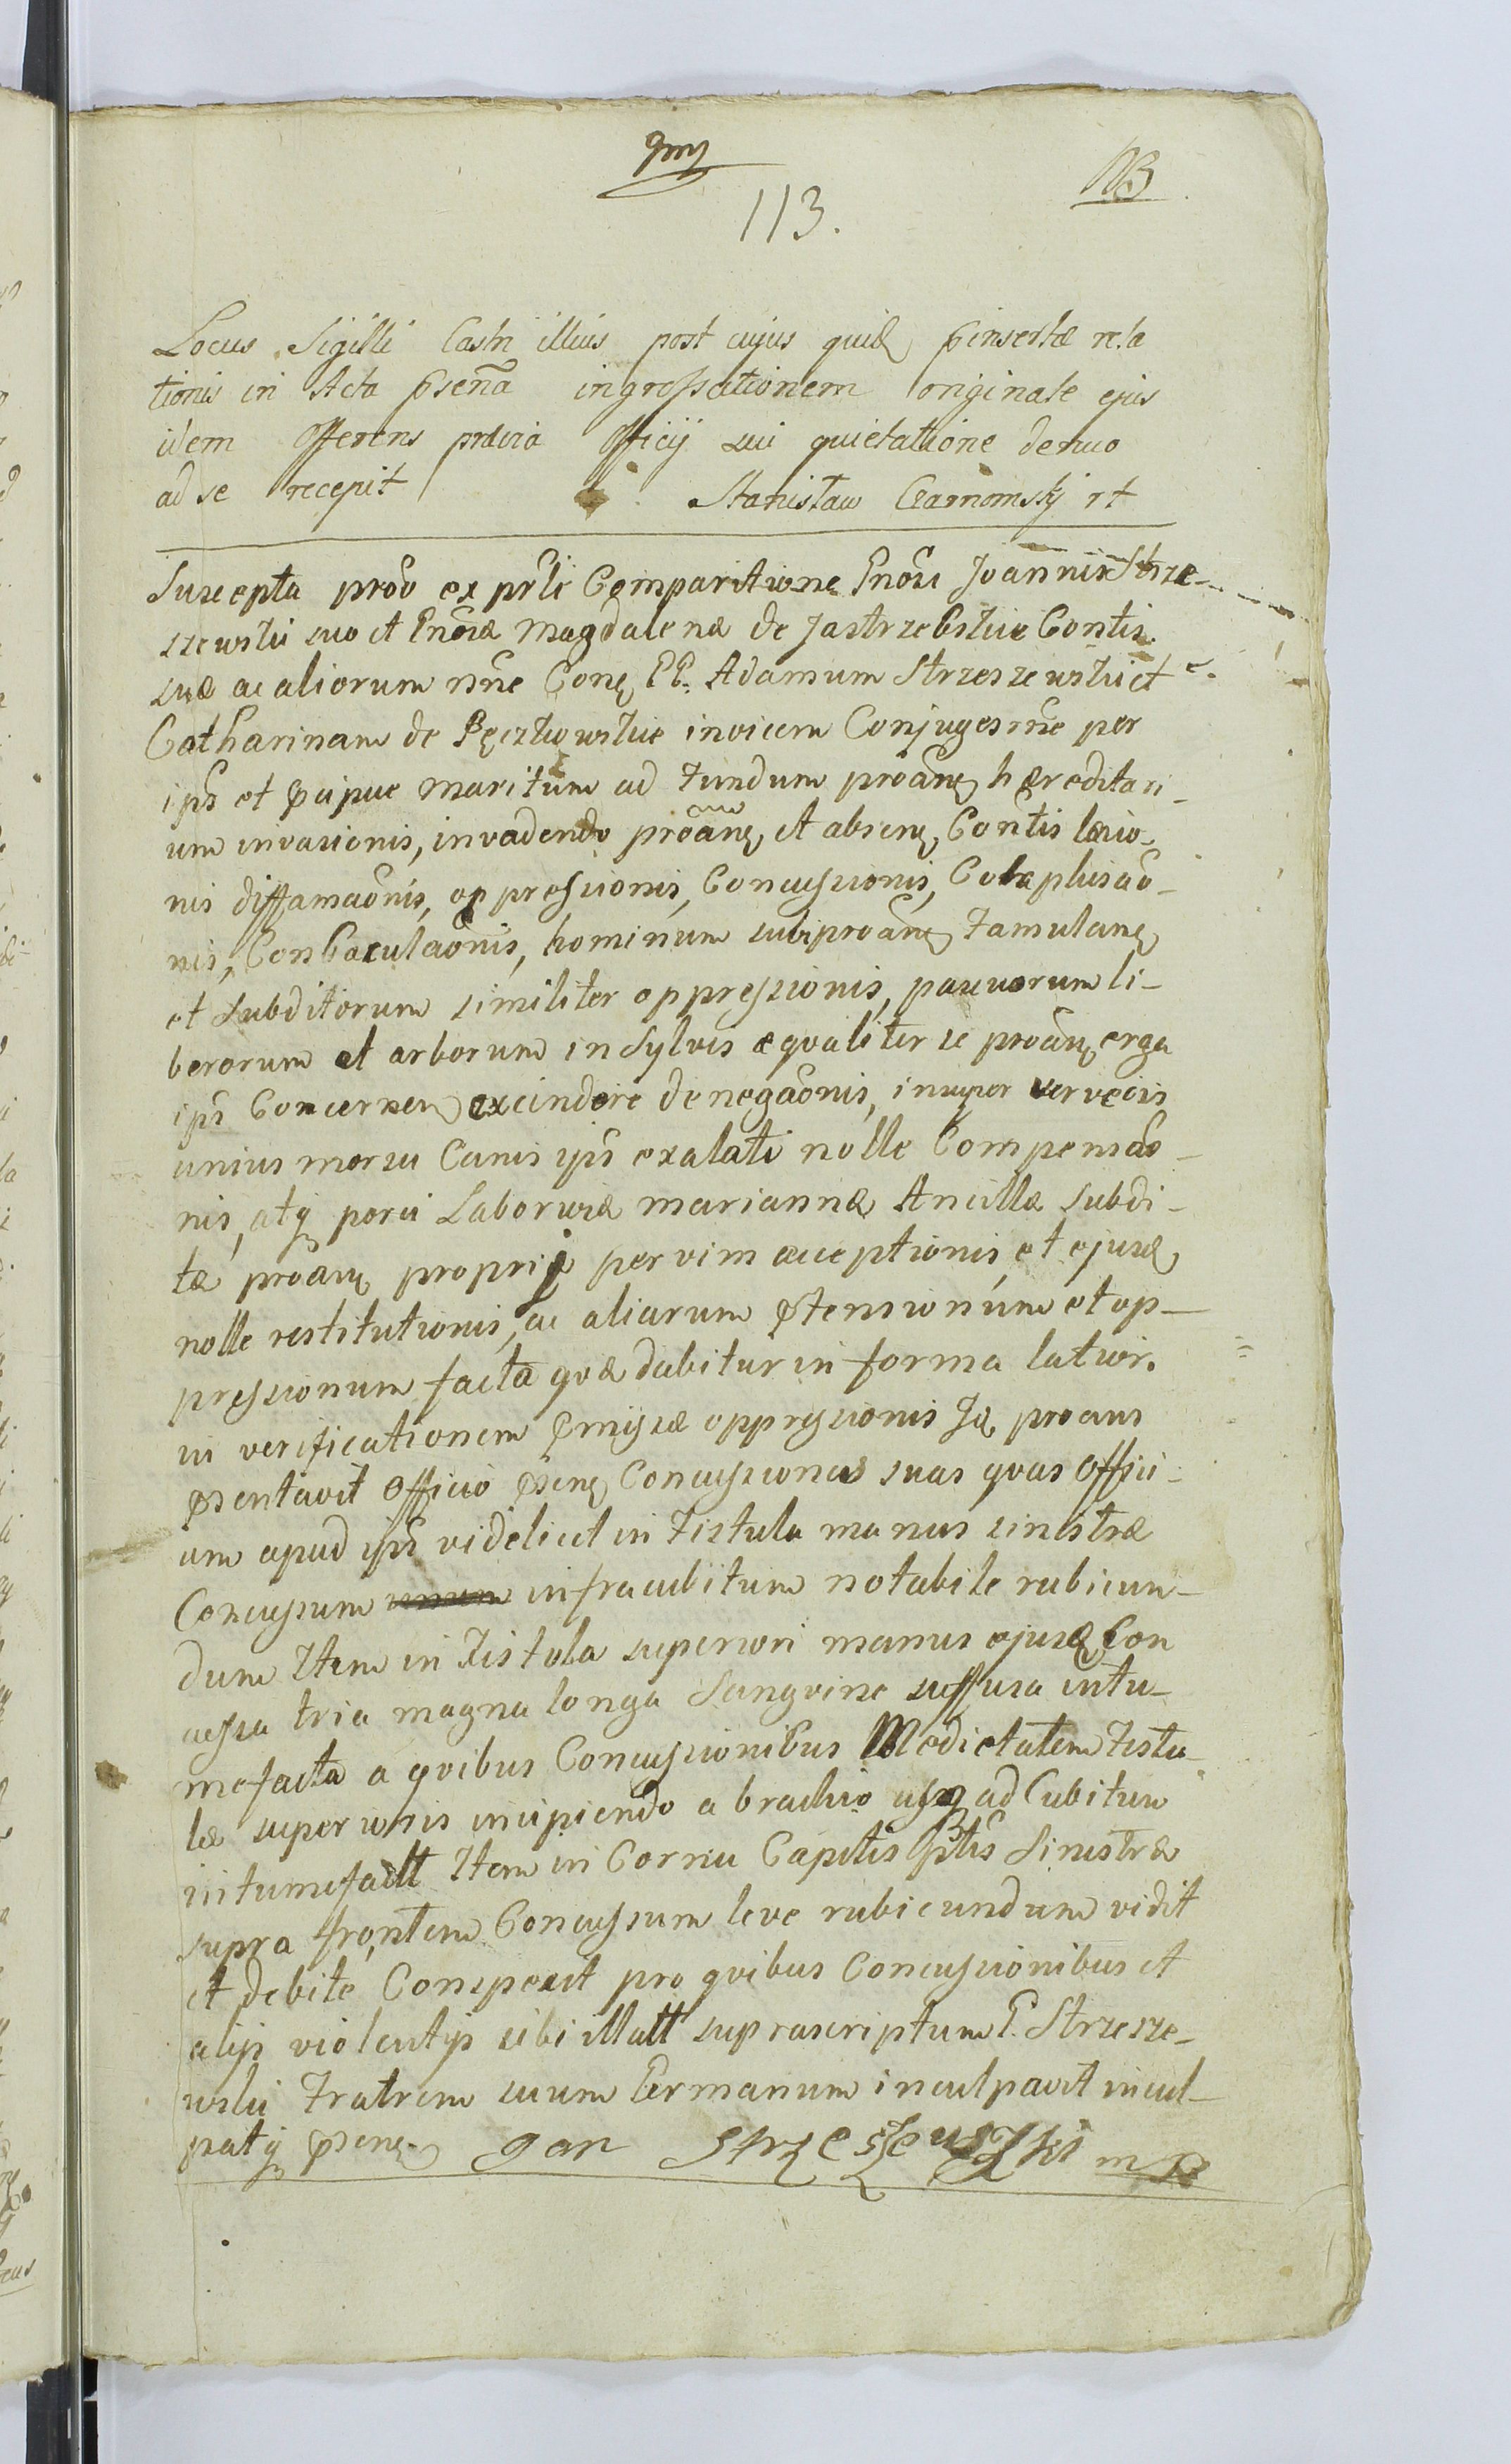 113.
Locus Sigilli Castri illius post cujus quidę pinsertæ rela
tionis in Acta psenã ingrossationem originale ejus
idem Offerens prævia Officij sui quietatione denuo
ad se recepit Stanisław Czarnomskj rt
Suscepta prõo ex prli Comparitione Gnõsi Joannis Strze-
szewski suo et Gnõsæ Magdalenæ de Jastrzebskie Contis
suæ ac aliorum nne Conę GG. Adamum Strzeszewski et
Catharinam de invicem Conjuges nne per
ips et pcipue maritum ad Fundum proãnę hæreditari-
um invasionis, invadendo proãnę et absenę Contis læsio-
nis diffamaõnis, oppressionis, Concussionis, Colaphisaõ-
nis, Conbaculaõnis, hominum subiproãnę Famulanę
et subditorum similiter oppressionis, pascuorum li-
berorum et arborum in Sylvis æqvaliter se proãnę erga
ips Concernenę excindere denegaõnis, insuper vervecis
unius morsu Canis ips exalati nolle Compensaõ-
nis, atq porci Laboriosæ Mariannæ Ancillæ subdi-
tæ proãnę proprij per vim acceptionis, et ejusdę
nolle restitutionis, ac aliarum ptensionum et op-
pressionum facta qvæ dabitur in forma latior.
in verificationem pmissæ oppressionis Idę proans
psentavit Officio psenę Concussiones suas qvas Offici-
um apud ips videlicet in Fistula manus sinistræ
Concussum infra cubitum notabile rubicun-
dum Item in Fistola superiori manus ejusdę Con
cussa tria magna longa Sangvine suffusa intu-
mefacta a qvibus Concussionibus Medietatem Fistu-
læ superioris incipiendo a brachio usq ad Cubitum
intumefactt Item in Cornu Capitis ptis Sinistræ
supra frontem Concussum leve rubicundum vidit
et debite Conspexit pro qvibus Concussionibus et
alijs violentijs sibi illatt suprascriptum G. Strzesze-
wski Fratrem suum Germanum inculpavit incul-
patq psenę Jan Strzeszewszki mp